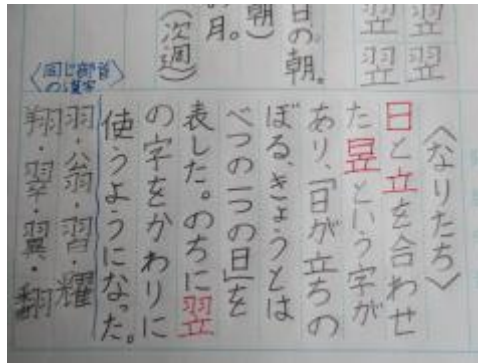 翌翌
翌翌
日の朝。
朝)
の月。
(次週)
〈なりたち〉
日と立を合わせ
た昱という字が
あり、「日が立ちの
ぼる、きょうとは
べつの一つの日」を
表した。のちに翌
の字をかわりに
使うようになった。
〈同じ部首の漢字〉
羽・翁・習・耀
翔・翠・翼・翻